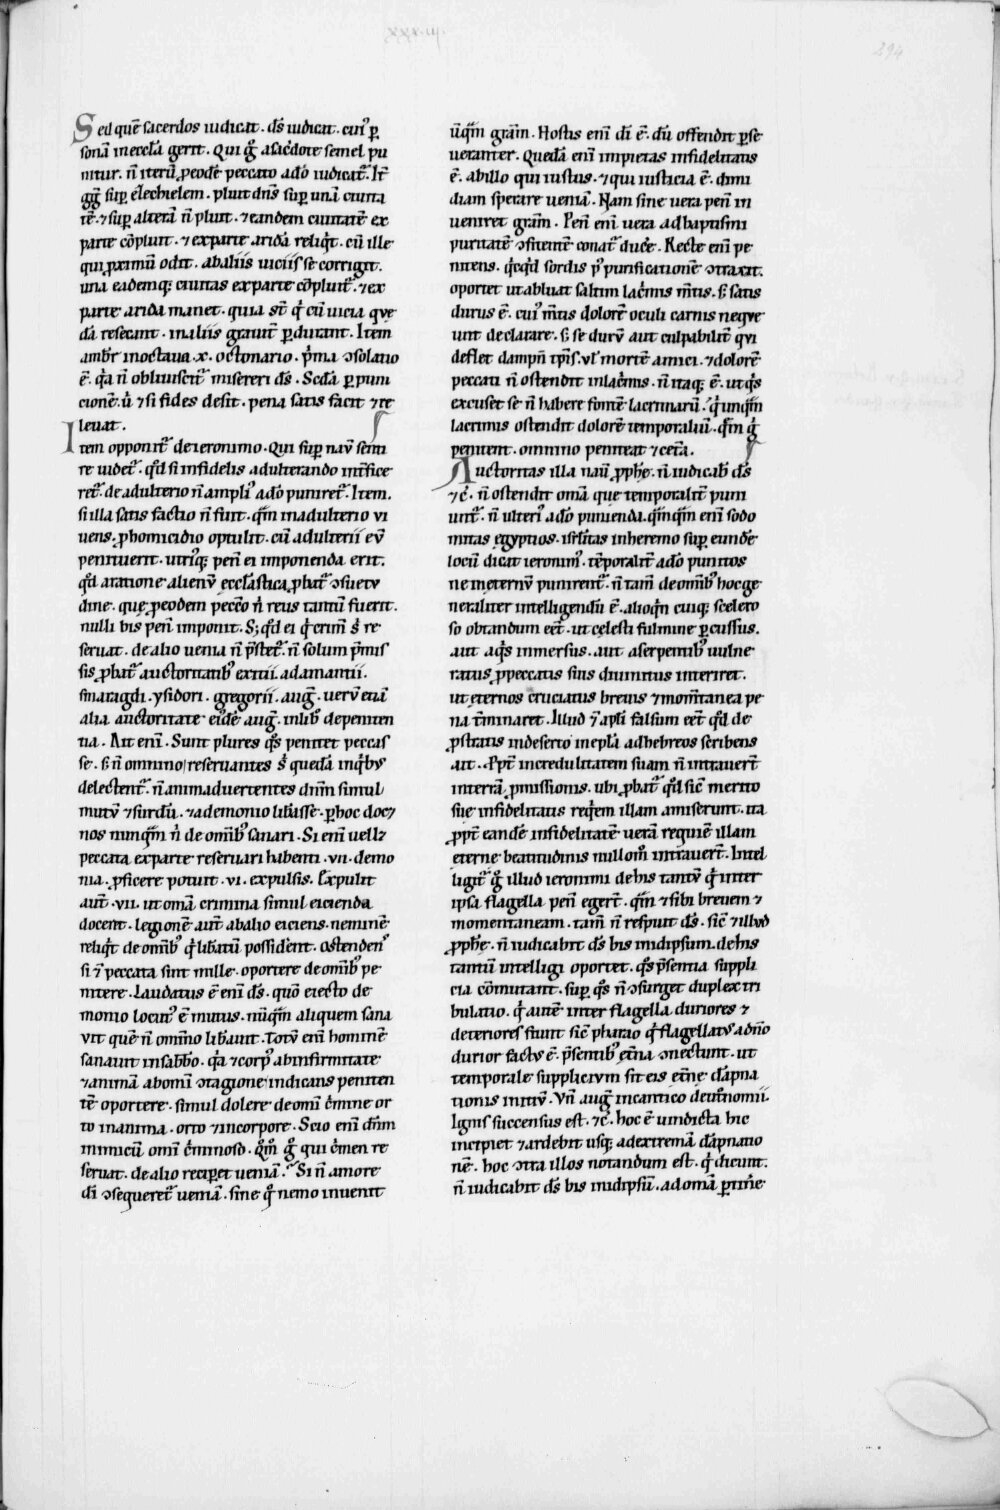 294
Sed quē sacerdos iudicat. dſ iudicat. cui⁹ ꝑ
sonā in eccl̄a gerit. Qui gͦ a sac̄dote semel pu
nitur. n̄ iterū ꝓ eodē peccato a dō iudicat᷑. It̄
gḡ sup̱ eȝechielem. pluit dn̄s sup̱ unā ciuita
tē. ⁊ sup̱ alterā n̄ pluit. ⁊ eandem ciuitatē ex
parte cōpluit. ⁊ ex parte aridā reliqͥt. cū ille
qui ꝓximū odit. ab aliis uiciis se corrigit.
una eademq; ciuitas ex parte cōpluit᷑. ⁊ ex
parte arida manet. quia st̄ qͥ cū uicia que
dā resecant. in aliis grauit̄ ꝑdurant. Item
ambr̄ in octaua .x. octonario. pͥma ↄsolatio
ē. qͥa n̄ obliuiscit᷑ misereri dſ. Scd̄a ꝑ puni
cionē. ū ⁊ si fides desit. pena satis facit ⁊ re
leuat.
Item opponit᷑ de ieronimo. Qui sup̱ naū sentī
re uidet᷑. qd̄ si infidelis adulterando int̄fice
ret᷑. de adulterio n̄ ampli⁹ a dō puniret᷑. Item.
si illa satisfactio n̄ fuit. qm̄ in adulterio vi
uens. ꝓ homicidio optulit. cū adulterii eū
penituerit. utriusq; pen̄ ei imponenda erit.
qd̄ a ratione alienū ecclēstica ꝓbat᷑ ↄsuetu
dine. que ꝓ eodem pecc̄o nͥ reus tantū fuerit.
nulli bis pen̄ imponit. Sȝ qd̄ ei qͥ crim̄ sͥ re
seruat. de alio uenia n̄ p̄stet᷑. n̄ solum p̄mis
sis ꝓbat᷑ auctoritatib⁹ extii. adamantii.
smaragdi. ysidori. gregorii. aug̅. uerū etiā
alia auctoritate eidē aug̅. in lib̄ de peniten
tia. Ait eni. Sunt plures qͦs penitet peccas
se. sȝ n̄ omnino reseruantes sͥ quedā in qͥbus
delectent᷑. n̄ animaduertentes dn̄m simul
mutū ⁊ surdū. ⁊ a demonio lib̄asse. ꝑ hoc doc⁊
nos nunqͣm nͥ de omīb⁹ sanari. Si eni uell⁊
peccata ex parte reseruari habenti .vii. demo
nia. ꝓficere potuit .vi. expulsis. Expulit
aut̄ .vii. ut om̄a crimina simul eicienda
docent. legionē aut̄ ab alio eiciens. neminē
reliqͥt de omīb⁹ qͥ libatū possident. ostendens
si ⁊ peccata sint mille. oportere de omīb⁹ pe
nitere. Laudatus ē eni dſ. quō eiecto de
monio locut⁹ ē mutus. nūqͣm aliquem sana
vit quē n̄ omīno lib̄auit. Totū eni hominē
sanauit in sabb̄o. qͥa ⁊ corp⁹ ab infirmitate
⁊ animā ab omī ↄtagione indicans peniten
tē oportere. simul dolere de omī cͥmine or
to in anima. orto ⁊ in corpore. Scio eni dn̄m
inimicū omī cͥminoso. Qͦm̄ gͦ qui cͥmen re
seruat. de alio reciperet ueniā. Si n̄ amore
dī ↄsequeret᷑ ueniā. sine qͦ nemo inuenit
ūqͣm grām. Hostis eni dī ē. dū offendit ꝑse
ueranter. Quedā eni impietas infidelitatis
ē. ab illo qui iustus. ⁊ qui iusticia ē. dimi
diam sperare ueniā. Nam sine uera pen̄ in
ueniret grām. Pen̄ eni uera ad baptismi
puritatē ↄsitentē conat᷑ duc̄e. Recte eni pe
nitens. qͥcqͥd sordis p⁹ purificationē ↄtraxit.
oportet ut abluat saltim lac̄mis m̄tis. sȝ satis
durus ē. cui⁹ m̄tis dolorē oculi carnis neque
unt declarare. sȝ se durū aut culpabilit̄ qui
deflet dampn̄ tp̄is. vl̓ mortē amici. ⁊ dolorē
peccati n̄ ostendit in lac̄mis. n̄ itaq; ē. ut qͥs
excuset se n̄ habere fontē lacrimarū. qͥ unqͣm
lacrimis ostendit dolorē temporaliū. qͣm gͦ
penitent. omnino peniteat ⁊ cet̄a.
Auctoritas illa naū ꝓph̄e. n̄ iudicab̄ dſ
⁊c̄. n̄ ostendit om̄a que temporalit̄ puni
unt᷑. n̄ ulteri⁹ a dō punienda. qͣmqͣm eni sodo
mitas egyptios. isrl̄itas in heremo sup̱ eundē
locū dicat ieronim⁹. tēporalit̄ a dō punitos
ne in eternū punirent᷑. n̄ tam̄ de omīb⁹ hoc ge
neraliter intelligendū ē. alioqͥn cuiq; scelero
so obtandum eēt. ut celesti fulmine ꝑcussus.
aut aqͥs immersus. aut a serpentib⁹ uulne
ratus ꝓ peccatis suis diuinitus interiret.
ut eternos cruciatus breuis ⁊ mom̄tanea pe
na t̄minaret. Illud ⁊ apl̄i falsum eēt qd̄ de
ꝓstratis in deserto in epl̄a ad hebreos scribens
ait. Ꝓpt̄ incredulitatem suam n̄ intrauert̄
in terrā ꝓmissionis. ubi ꝓbat᷑ qd̄ sic̄ merito
sue infidelitatis reqͥem illam amiserunt. ita
ꝓpt̄ eandē infidelitatē uerā requiē illam
eterne beatitudinis nullom̄ intrauert̄. Intel
ligit᷑ gͦ illud ieronimi de his tantū qͥ inter
ipsa flagella pen̄ egert̄. qͣm ⁊ si breuem ⁊
momentaneam. tam̄ n̄ respuit dſ. sic̄ ⁊ illud
ꝓph̄e. n̄ iudicabit dſ bis in idipsum. de his
tantū intelligi oportet. qͦs p̄sentia suppli
cia cōmutant. sup̱ qͦs n̄ ↄsurget duplex tri
bulatio. qͥ autē inter flagella duriores ⁊
deteriores fiunt sic̄ pharao qͥ flagellatus a dn̄o
durior factus ē. p̄sentib⁹ et̄na ↄnectunt. ut
temporale supplicium sit eis et̄ne dāpna
tionis initiū. Vn̄ aug̅ in cantico deut̄nomii.
Ignis succensus est. ⁊c̄. hoc ē uindicta hic
incipiet ⁊ ardebit usq; ad extremā dāpnatio
nē. hoc ↄtra illos notandum est. qͥ dicunt.
n̄ iudicabit dſ bis in idipsū. ad omā ꝑtin̄e